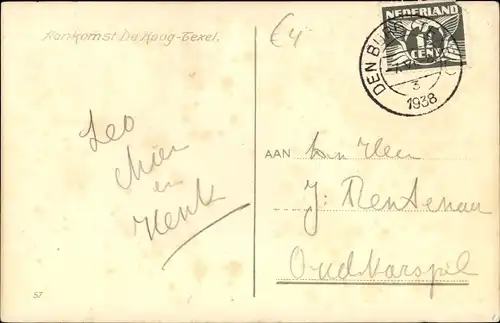 Aankomst De Koog-Texel.
€4
NEDERLAND
1½
CENT
DEN BURG
3
1938
Leo
Mien
en
Henk
AAN den Heer
J: Rentenaar
Oudkarspel
57